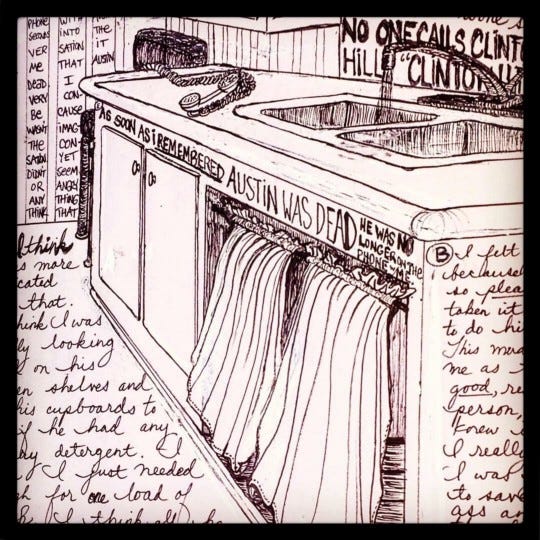 PHONE
SECONDS
VER
ME
DEAD.
VERY
BE
WASN'T
THE
SATION.
DIDN'T
OR
ANY
THINK
WITH
INTO
SATION
THAT
I
CON-
CAUSE
IMAG
CON-
YET
SEEM
ANGRY
THING
THAT
THE
IT
AUSTIN
NO ONE CALLS CLINTO
HILL "CLINTON HI
"AS SOON AS I REMEMBERED AUSTIN WAS DEAD HE WAS NO
LONGER ON THE
PHONE
I think
s more
cated
that.
hink I was
ly looking
on his
en shelves and
his cupboards to
if he had any
detergent. I
I just needed
for one load of
I think
B I felt
because
so plea
taken it
to do hi
This mea
me as
good, re
person,
knew
I really
I was
to save
ass a